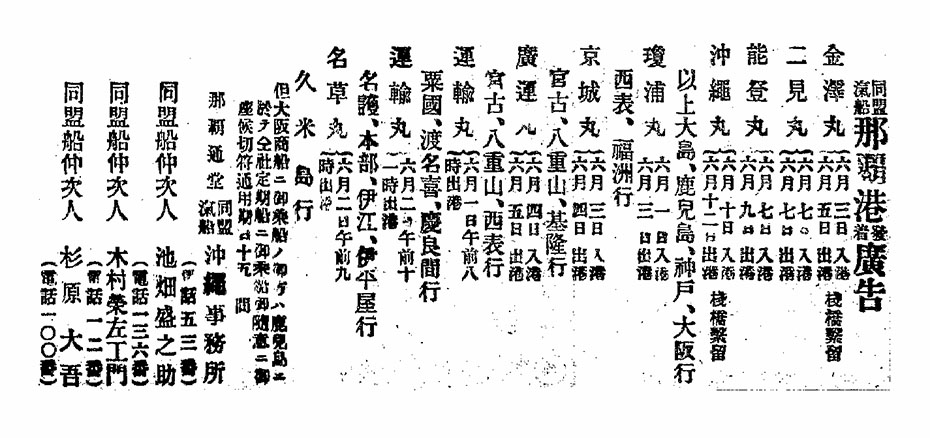 同盟汽船那覇港發着廣告
金澤丸
六月三日入港
六月五日出港
棧橋繫留
二見丸
六月七日入港
六月七日出港
能登丸
六月七日入港
六月九日出港
沖繩丸
六月十日入港
六月十二日出港
棧橋繫留
以上大島、鹿兒島、神戸、大阪行
瓊浦丸
六月一日入港
六月三日出港
西表、福洲行
京城丸
六月三日入港
六月四日出港
宮古、八重山、基隆行
廣運丸
六月四日入港
六月五日出港
宮古、八重山、西表行
運輸丸
六月一日午前八
時出港
粟國、渡名喜、慶良間行
運輸丸
六月二日午前十
一時出港
名護、本部、伊江、伊平屋行
名草丸
六月二日午前九
時出港
久米島行
但大阪商船ニ御乘船ノ御方ハ鹿兒島ニ
於テ仝社定期船ニ御乘船御隨意ニ御
座候切符通用期日十五日間
那覇通堂
同盟汽船沖繩事務所
(電話五三番)
同盟船仲次人 池畑盛之助
(電話一三六番)
同盟船仲次人 木村榮左工門
(電話一二番)
同盟船仲次人 杉原大吾
(電話一〇〇番)